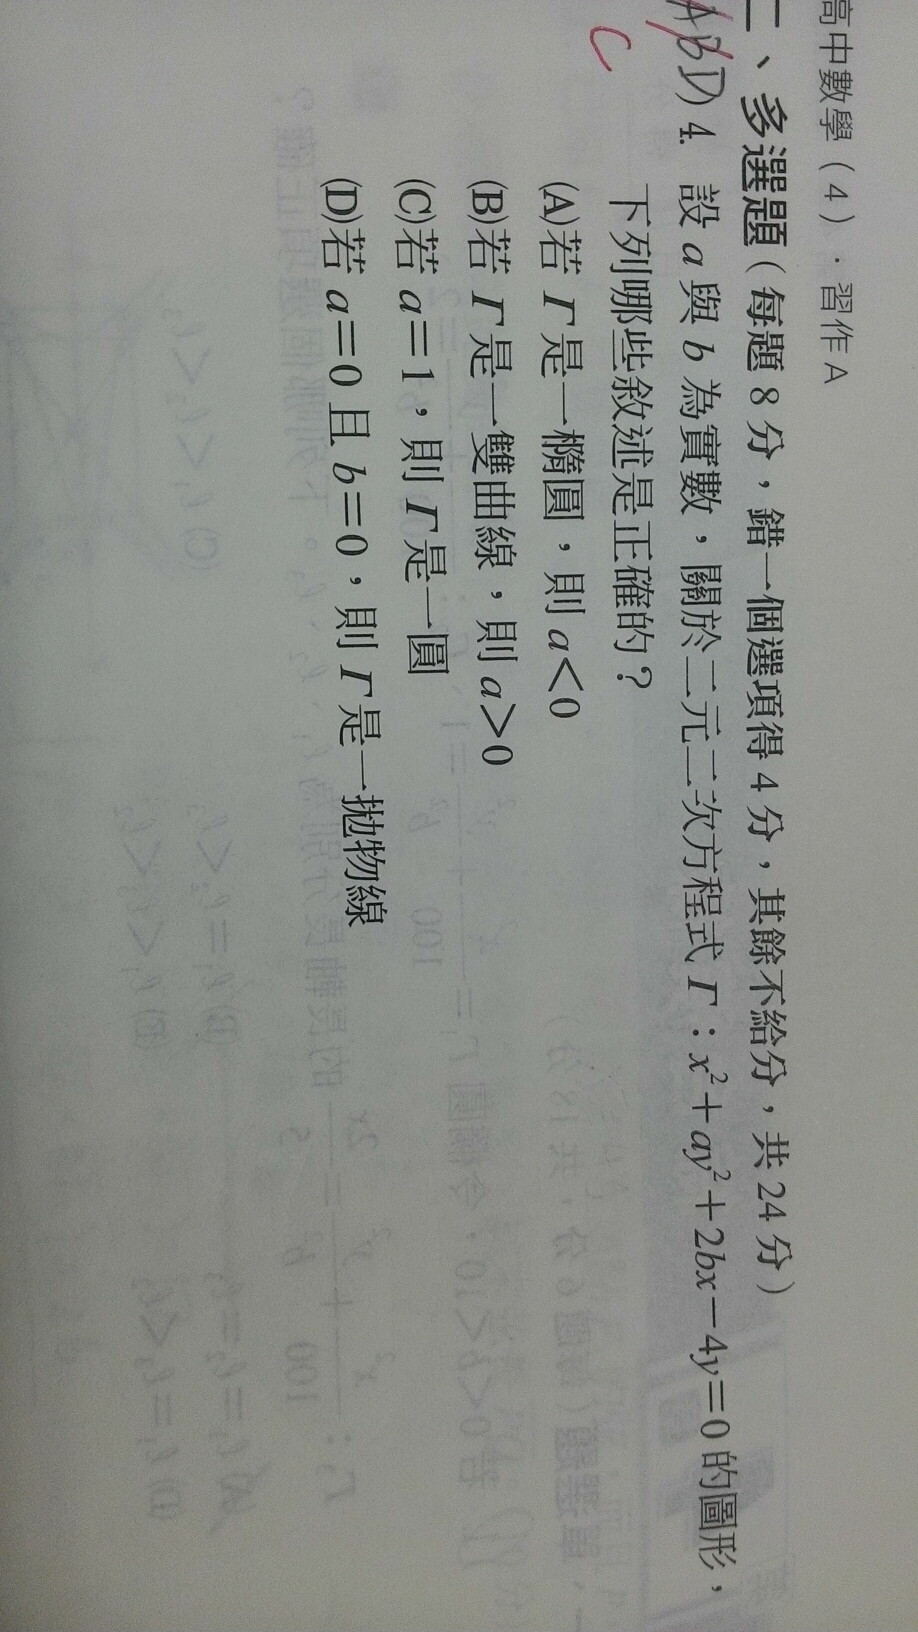 高中數學（4）．習作A
二、多選題（每題8分，錯一個選項得4分，其餘不給分，共24分）
ABD)4. 設a與b為實數，關於二元二次方程式Γ：x²＋ay²＋2bx－4y＝0的圖形，
C
下列哪些敘述是正確的？
(A)若Γ是一橢圓，則a＜0
(B)若Γ是一雙曲線，則a＞0
(C)若a＝1，則Γ是一圓
(D)若a＝0且b＝0，則Γ是一拋物線